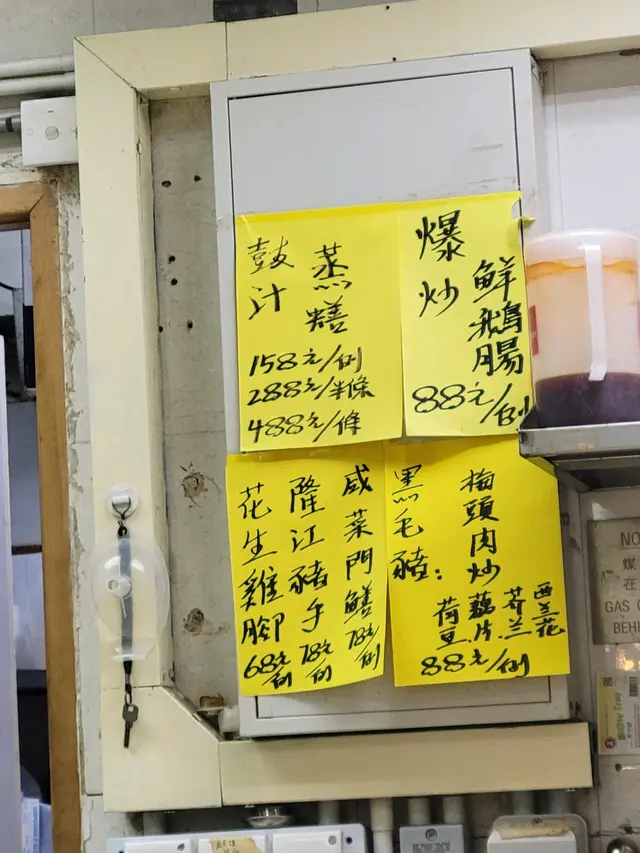 鼓汁
蒸鱔
158元/例
288元/半條
488元/條
爆炒
鮮鵝腸
88元/例
花生雞腳
68元/例
隆江豬手
78元/例
咸菜門鱔
78元/例
黑毛豬:
梅頭肉炒
荷豆.藕片.芥兰.西兰花
88元/例
NO
煤
在
GAS
BEHI